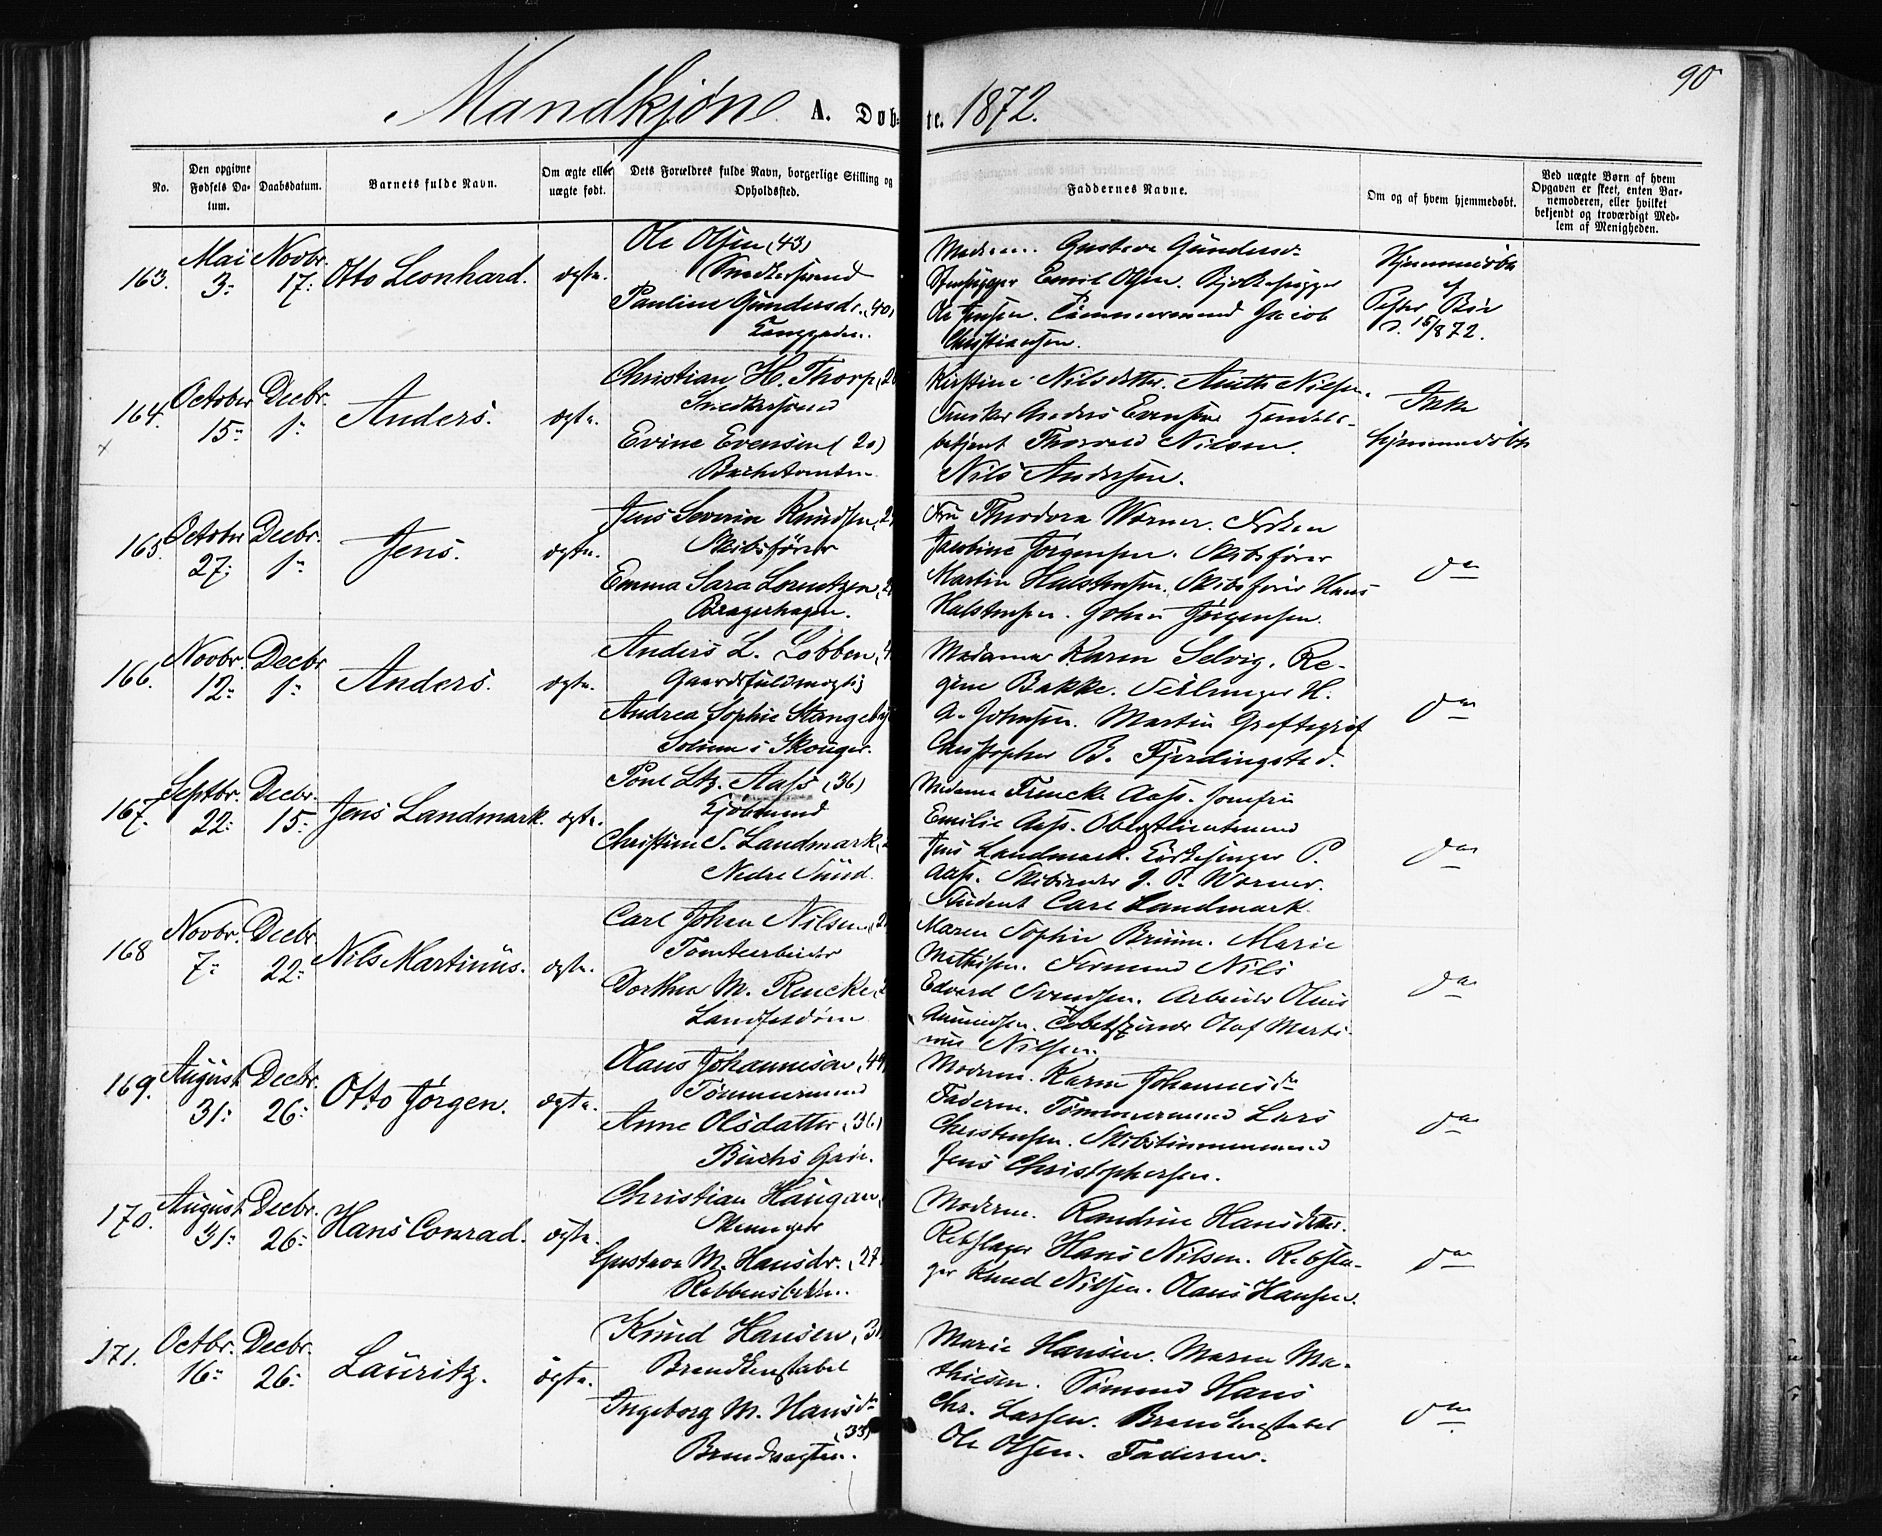 90
Mandkjøn. A. Døbte. 1872.
No.
Den opgivne Fødsels Datum.
Daabsdatum.
Barnets fulde Navn.
Om ægte eller uægte født.
Dets Forældres fulde Navn, borgerlige Stilling og Opholdssted.
Faddernes Navne.
Om og af hvem hjemmedøbt.
Ved uægte Børn af hvem Opgaven er skeet, enten Barnemoderen, eller hvilket bekjendt og troværdigt Medlem af Menigheden.
163. Mai 3. Novbr. 17. Otto Leonhard. ægte.
Ole Olsen (43)
Snedkersvend
Pauline Gundersdr. (40)
Langgaden.
Moderen. Gustava Gundersd.
Stenhugger Emil Olsen.
Ole Jensen. Tømmermand Jacob
Christiansen.
Hjemmedøbt
af
d. 15/8 72.
164. October 15. Decbr. 1. Anders. ægte.
Christian H. Thorp
Snedkersvend
Evine Evensen (20)
Kirstine Nilsdatter. Anette Nilsen.
Anders Evensen Handels-
betjent Thorvald Nilsen.
Nils Andersen.
Ikke
hjemmedøbt
165. October 27. Decbr. 1. Jens. ægte.
Jens Severin Knudsen
Skibsfører
Emma Sara Lorentzen
Bragerhagen.
Fru Theodora Wørner. Frøken
Jacobine Jørgensen. Skibsfører
Martin Halstensen. Skibsfører Hans
Halstensen. Johan Jørgensen.
do
166. Novbr. 12. Decbr. 1. Anders. ægte.
Anders L. Løbben
Gaardsfuldmægtig
Andrea Sophie Stangeby
Solum i Skouger.
Madamer Karen Selvig. Re-
gine Bakke. H.
A. Johnsen. Martin Greftegref
Christopher B. Fjerdingstad.
do
167. Septbr. 22. Decbr. 15. Jens Landmark. ægte.
Poul Ltz. Aass (36)
Kjøbmand
Christine S. Landmark
Nedre Sund.
Madame Frencke Aass. Jomfru
Emilie Aass. Oberstlieutenand
Jens Landmark. Kirkesanger P.
Aass. Skibsreder J. P. Wørner.
Student Carl Landmark.
do
168 Novbr. 7. Decbr. 22. Nils Martinus. ægte.
Carl Johan Nilsen
Tomtearbeider
Dorthea M. Rencke
Landfaldøen
Maren Sophie Bruun. Marie
Mathisen. Sømand Nils
Edvard Svendsen. Arbeider Olaus
Amundsen. Olaf Marti-
nus Nilsen.
do
169. August 31. Decbr. 26. Otto Jørgen. ægte.
Olaus Johannesen
Tømmermand
Anne Olsdatter (36)
Buchs Gade.
Moderen. Karen Johannesdr
Faderen. Tømmermand Lars
Christensen. Skibstømmermand
Jens Christophersen.
do
170. August 31. Decbr. 26. Hans Conrad. ægte.
Christian Haugan
Gustava M. Hansdr. (27)
Robbensbakken.
Moderen. Randine Hansdatter.
Rebslager Hans Nilsen. Rebsla-
ger Knud Nilsen. Olaus Hansen.
do
171. Octbr. 16. Decbr. 26. Lauritz. ægte.
Knud Hansen
Brandkonstabel
Ingeborg M. Hansdr
(33)
Brandvagten.
Marie Hansen. Maren Ma-
thiesen. Sømand Hans
Chr. Larsen. Brandkonstabel
Ole Olsen. Faderen.
do